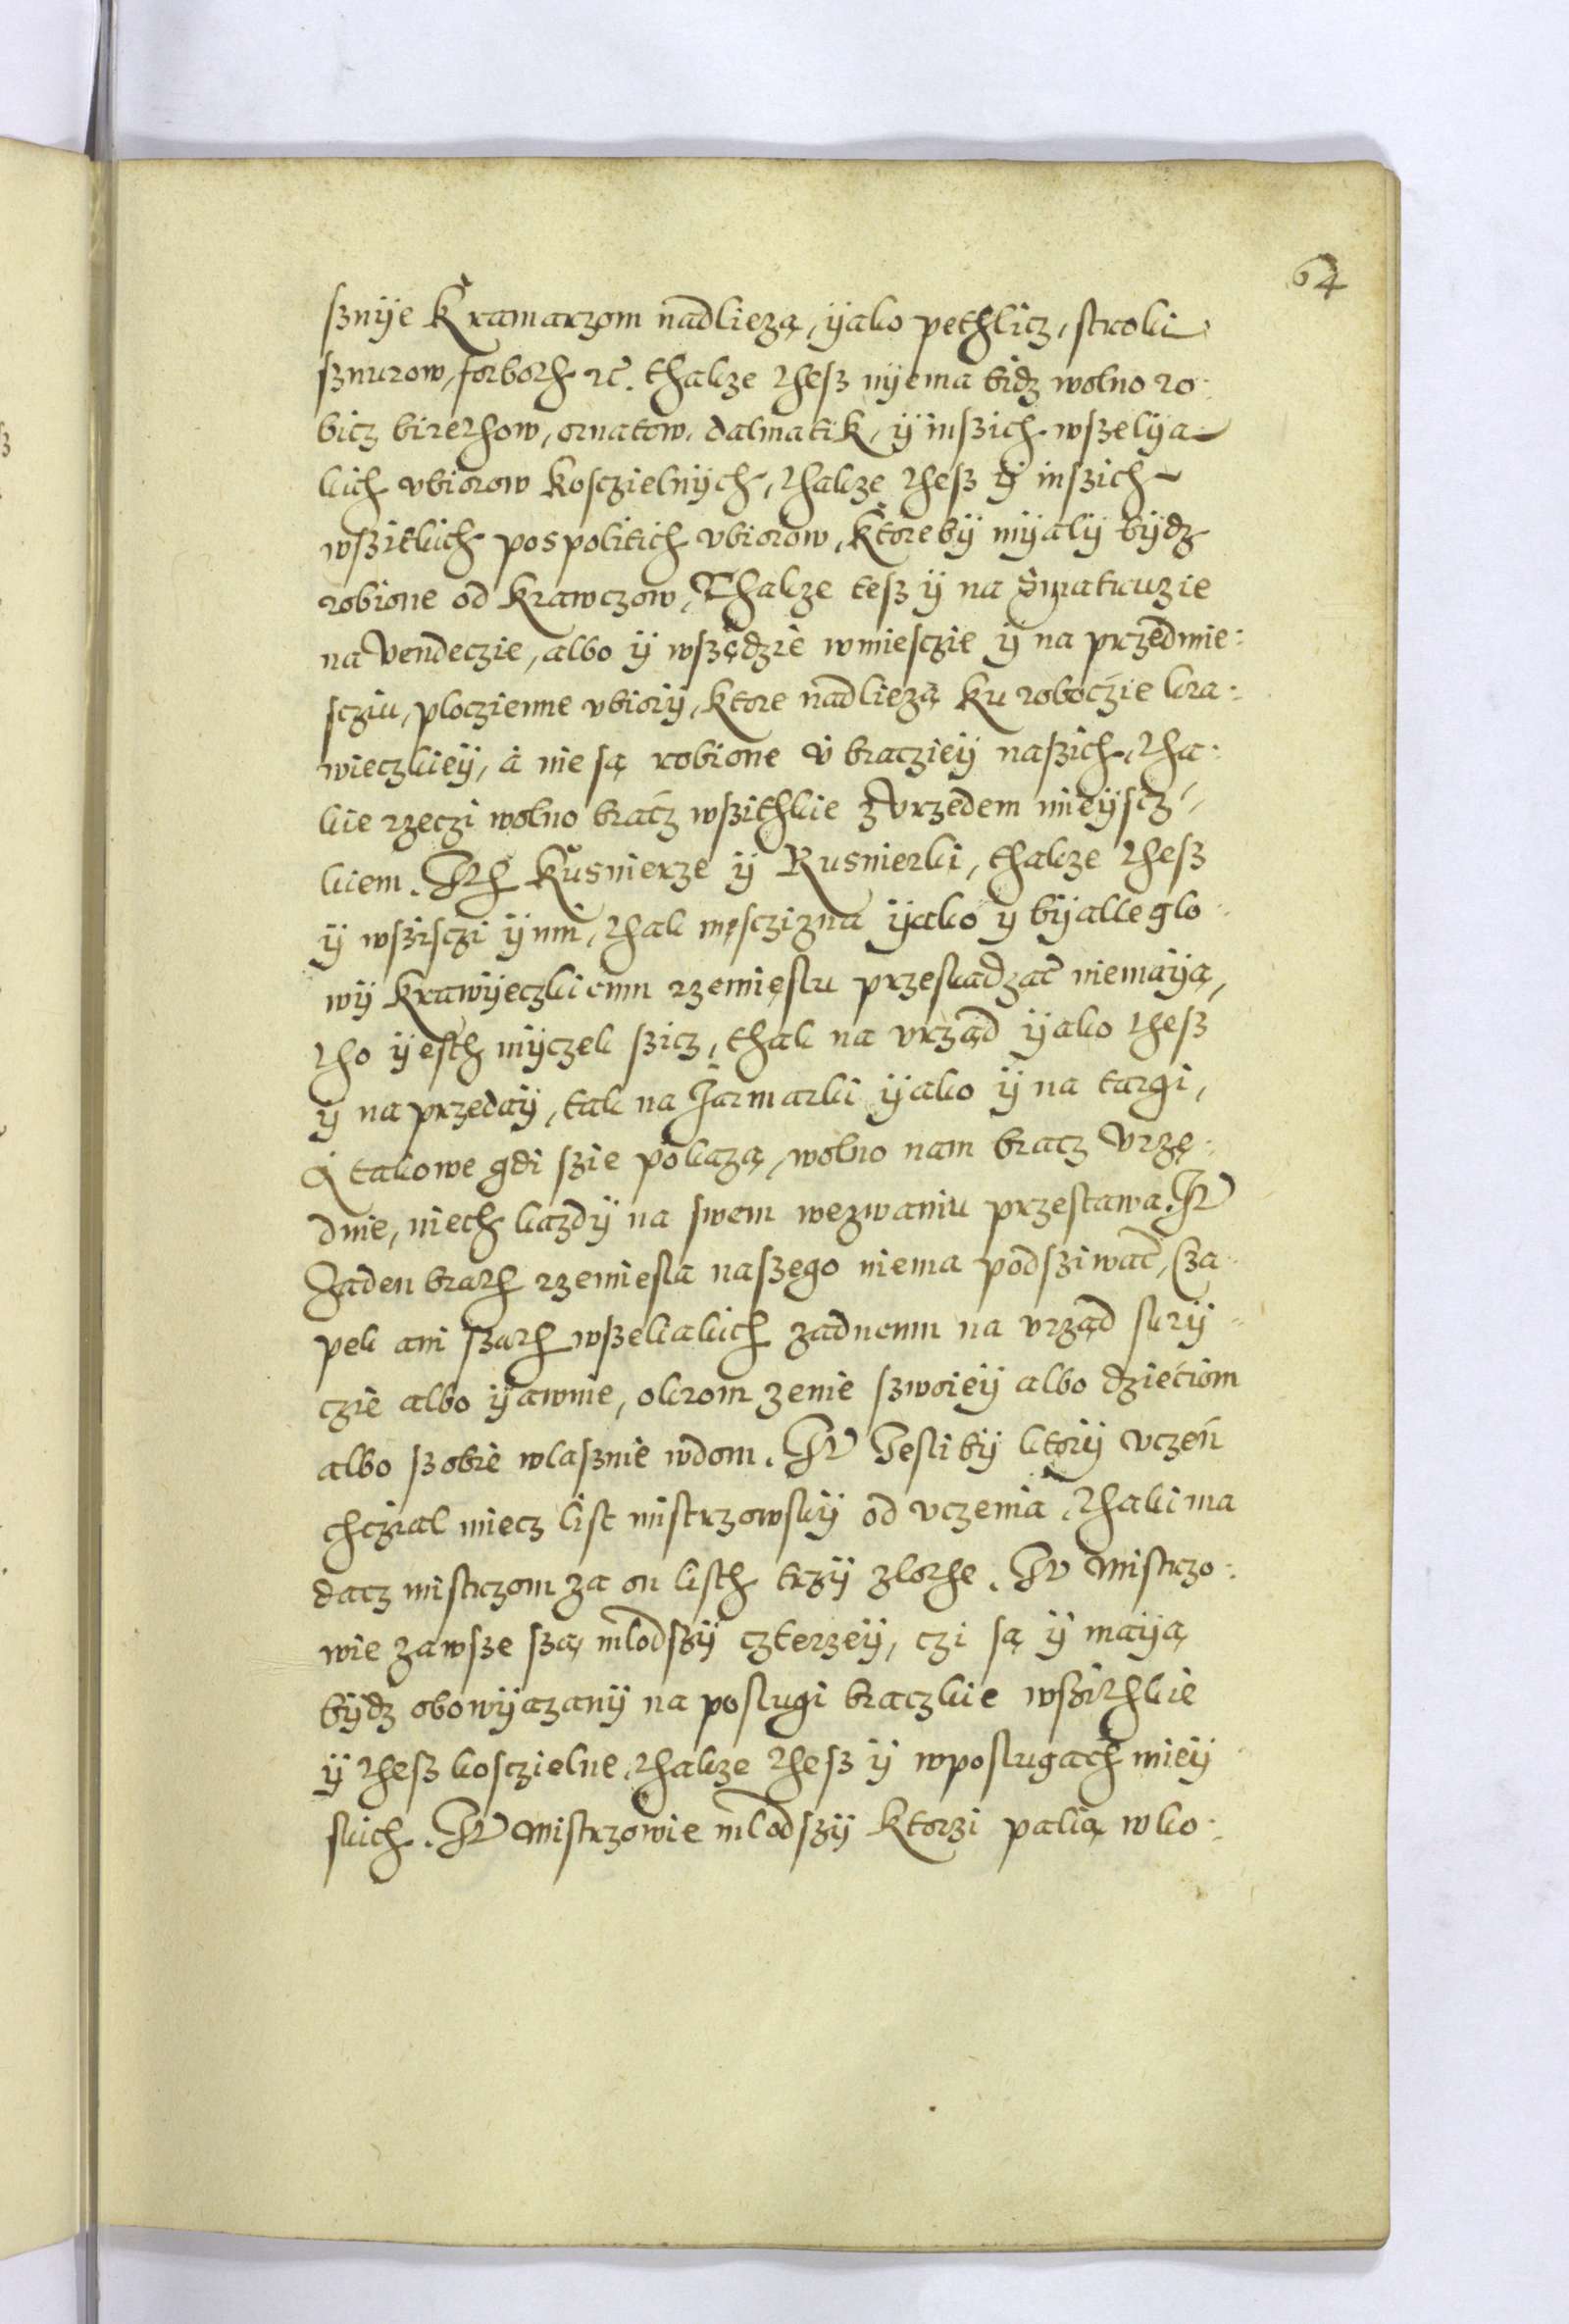 64
sznÿe Kramarzom nadlieżą, ÿako pethlicz, stroki
sznurow, forboth etc. thakze thesz nÿema bidz wolno ro:
bicz birethow, ornatow, dalmatik, ÿ inszich wszelÿa
kich vbiorow kosczielnÿch, thakze thesz ÿ inszich
wszitkich pospolitich vbiorow, ktorebÿ mÿalÿ bÿdz
robione od krawczow, Thakze tesz ÿ na
na Vendeczie, albo ÿ wszędzie wmiesczie ÿ na przedmie:
sciu, ploczienne vbiorÿ, ktore nadlieżą ku roboczie kra:
wieczkieÿ, a nie są robione v bracziÿ naszich, tha:
kie rzeczi wolno bracz wszithkie z Vrzedem mieÿscz:
kiem. Ith Kusnierze ÿ Kusnierki, thakze thesz
ÿ wszisczi ÿnni, thak męsczizna ÿako y bÿalleglo:
wÿ krawÿeczkiemu rzemięslu przeskadzac niemaÿą,
tho ÿesth mÿczek szicz, thak na vrząd ÿako thesz
ÿ na przedaÿ, tak na Jarmarki ÿako ÿ na targi,
A takowe gdi szie pokazą, wolno nam bracz Vrzę:
dnie, niech kazdÿ na swem wezwaniu przestawa. It
Zaden brath rzemiesla naszego niema podsziwac, cza
pek ani szath wszeliakich zadnemu na vrząd skrÿ
czie albo ÿawnie, okrom zenie szwoieÿ albo dzieciom
albo szobie wlasznie wdom. It Jeslibÿ ktorÿ vczeń
chczial miecz list mistrzowskÿ od vczenia, thaki ma
dacz mistrzom za on listh trzÿ zlothe. It Mistrzo:
wie zawsze szą mlodszÿ czterzeÿ, czi są ÿ maÿą
bÿdz obowÿazanÿ na poslugi braczkie wszithkie
ÿ thesz koscielne, thakze thesz ÿ wposlugach mieÿ
skich. It Mistrzowie mlodszÿ ktorzi palią wko: